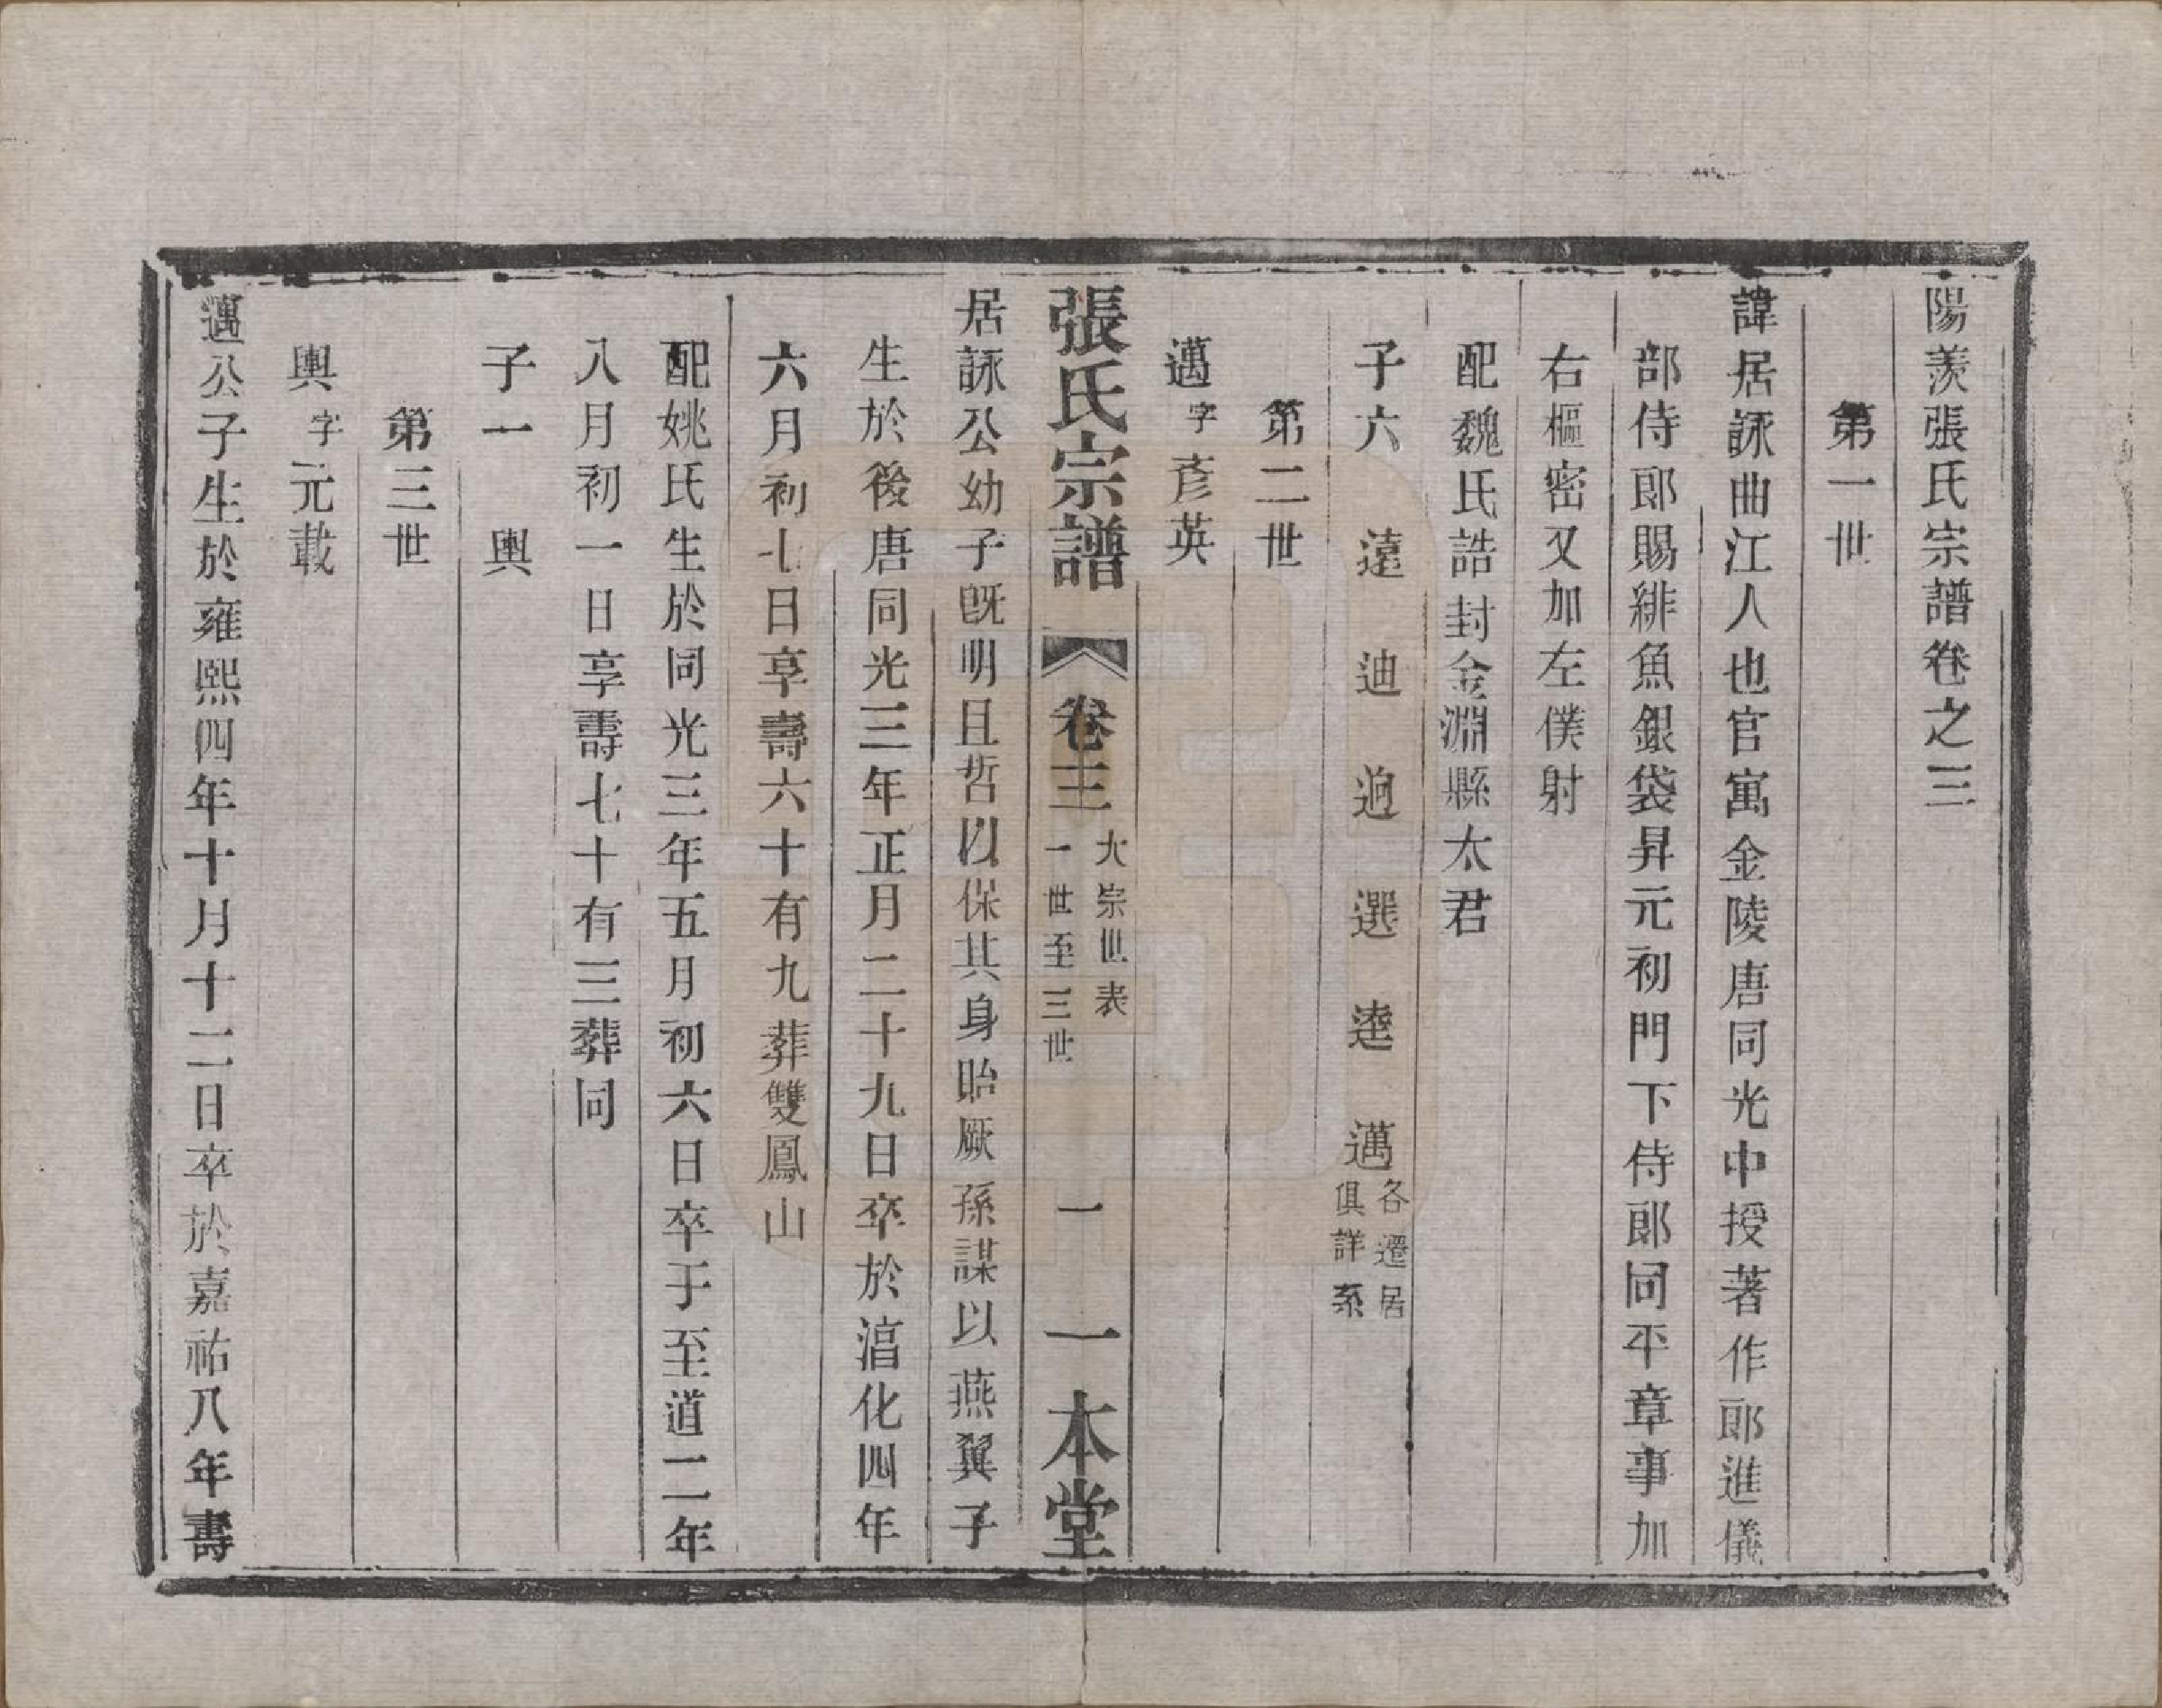 陽羡張氏宗譜卷之三
第一世
諱居詠曲江人也官寓金陵唐同光中授著作郎進儀
部侍郎賜緋魚銀袋昇元初門下侍郎同平章事加
右樞密又加左僕射
配魏氏誥封金淵縣太君
子六 遠 迪 迥 選 逵 邁各遷居俱詳系
第二世
邁字彥英
張氏宗譜 卷三 大宗世表一世至三世 一 一本堂
居詠公幼子旣明且哲以保其身貽厥孫謀以燕翼子
生於後唐同光三年正月二十九日卒於淯化四年
六月初七日享壽六十有九葬雙鳳山
配姚氏生於同光三年五月初六日卒于至道二年
八月初一日享壽七十有三葬同
子一 輿
第三世
輿字元載
邁公子生於雍熙四年十月十二日卒於嘉祐八年壽